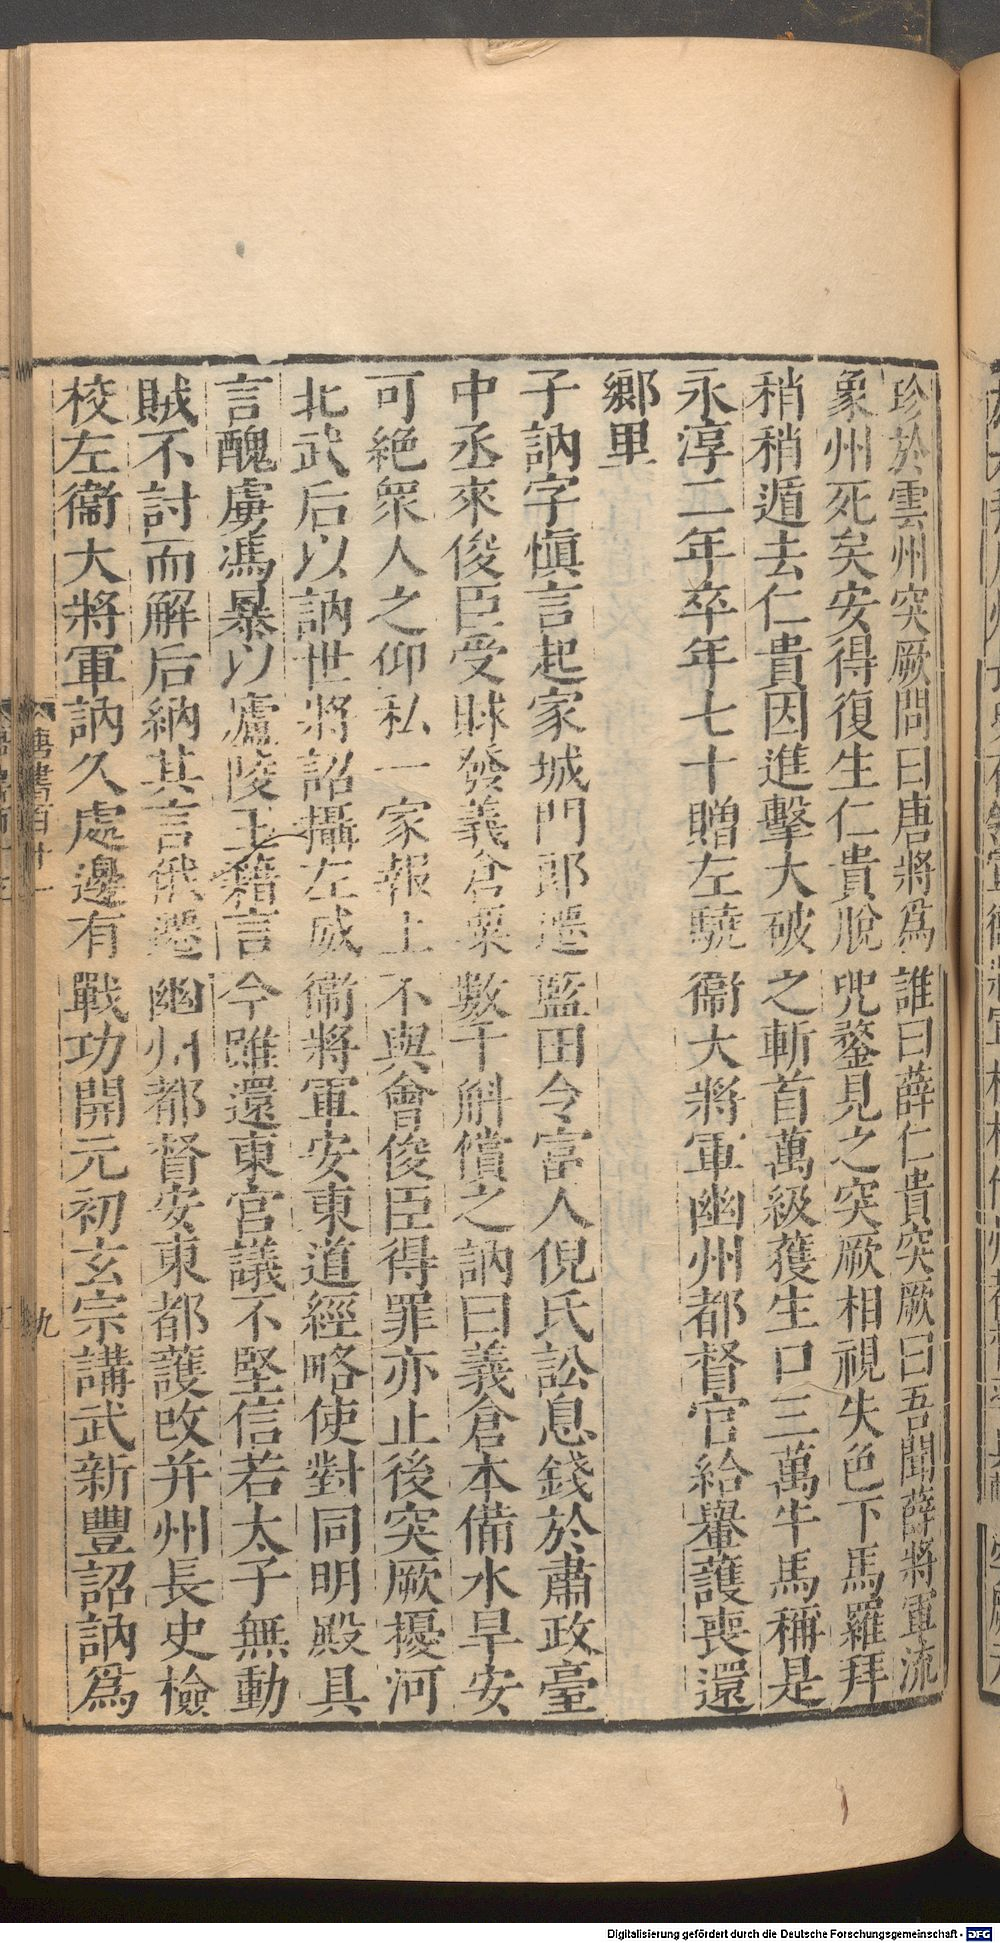 珍於雲州突厥問曰唐將爲誰曰薛仁貴突厥曰吾聞薛將軍流
象州死矣安得復生仁貴脫兜鍪見之突厥相視失色下馬羅拜
稍稍遁去仁貴因進擊大破之斬首萬級獲生口三萬牛馬稱是
永淳二年卒年七十贈左驍衞大將軍幽州都督官給轝護喪還
鄉里
子訥字愼言起家城門郎遷藍田令富人倪氏訟息錢於肅政臺
中丞來俊臣受賕發義倉粟數千斛償之訥曰義倉本備水旱安
可絕衆人之仰私一家報上不與會俊臣得罪亦止後突厥擾河
北武后以訥世將詔攝左威衞將軍安東道經略使對同明殿具
言醜虜馮暴以廬陵王藉言今雖還東宮議不堅信若太子無動
賊不討而解后納其言俄遷幽州都督安東都護改并州長史檢
校左衞大將軍訥久處邊有戰功開元初玄宗講武新豐詔訥爲
唐書百十一
九
Digitalisierung gefördert durch die Deutsche Forschungsgemeinschaft - DFG